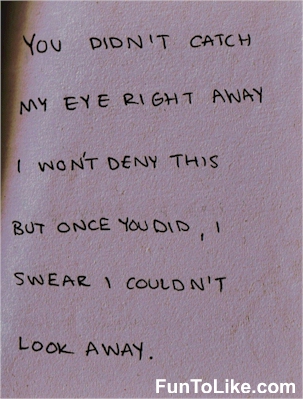 YOU DIDN'T CATCH
MY EYE RIGHT AWAY
I WON'T DENY THIS
BUT ONCE YOU DID, I
SWEAR I COULDN'T
LOOK AWAY.
FunToLike.com